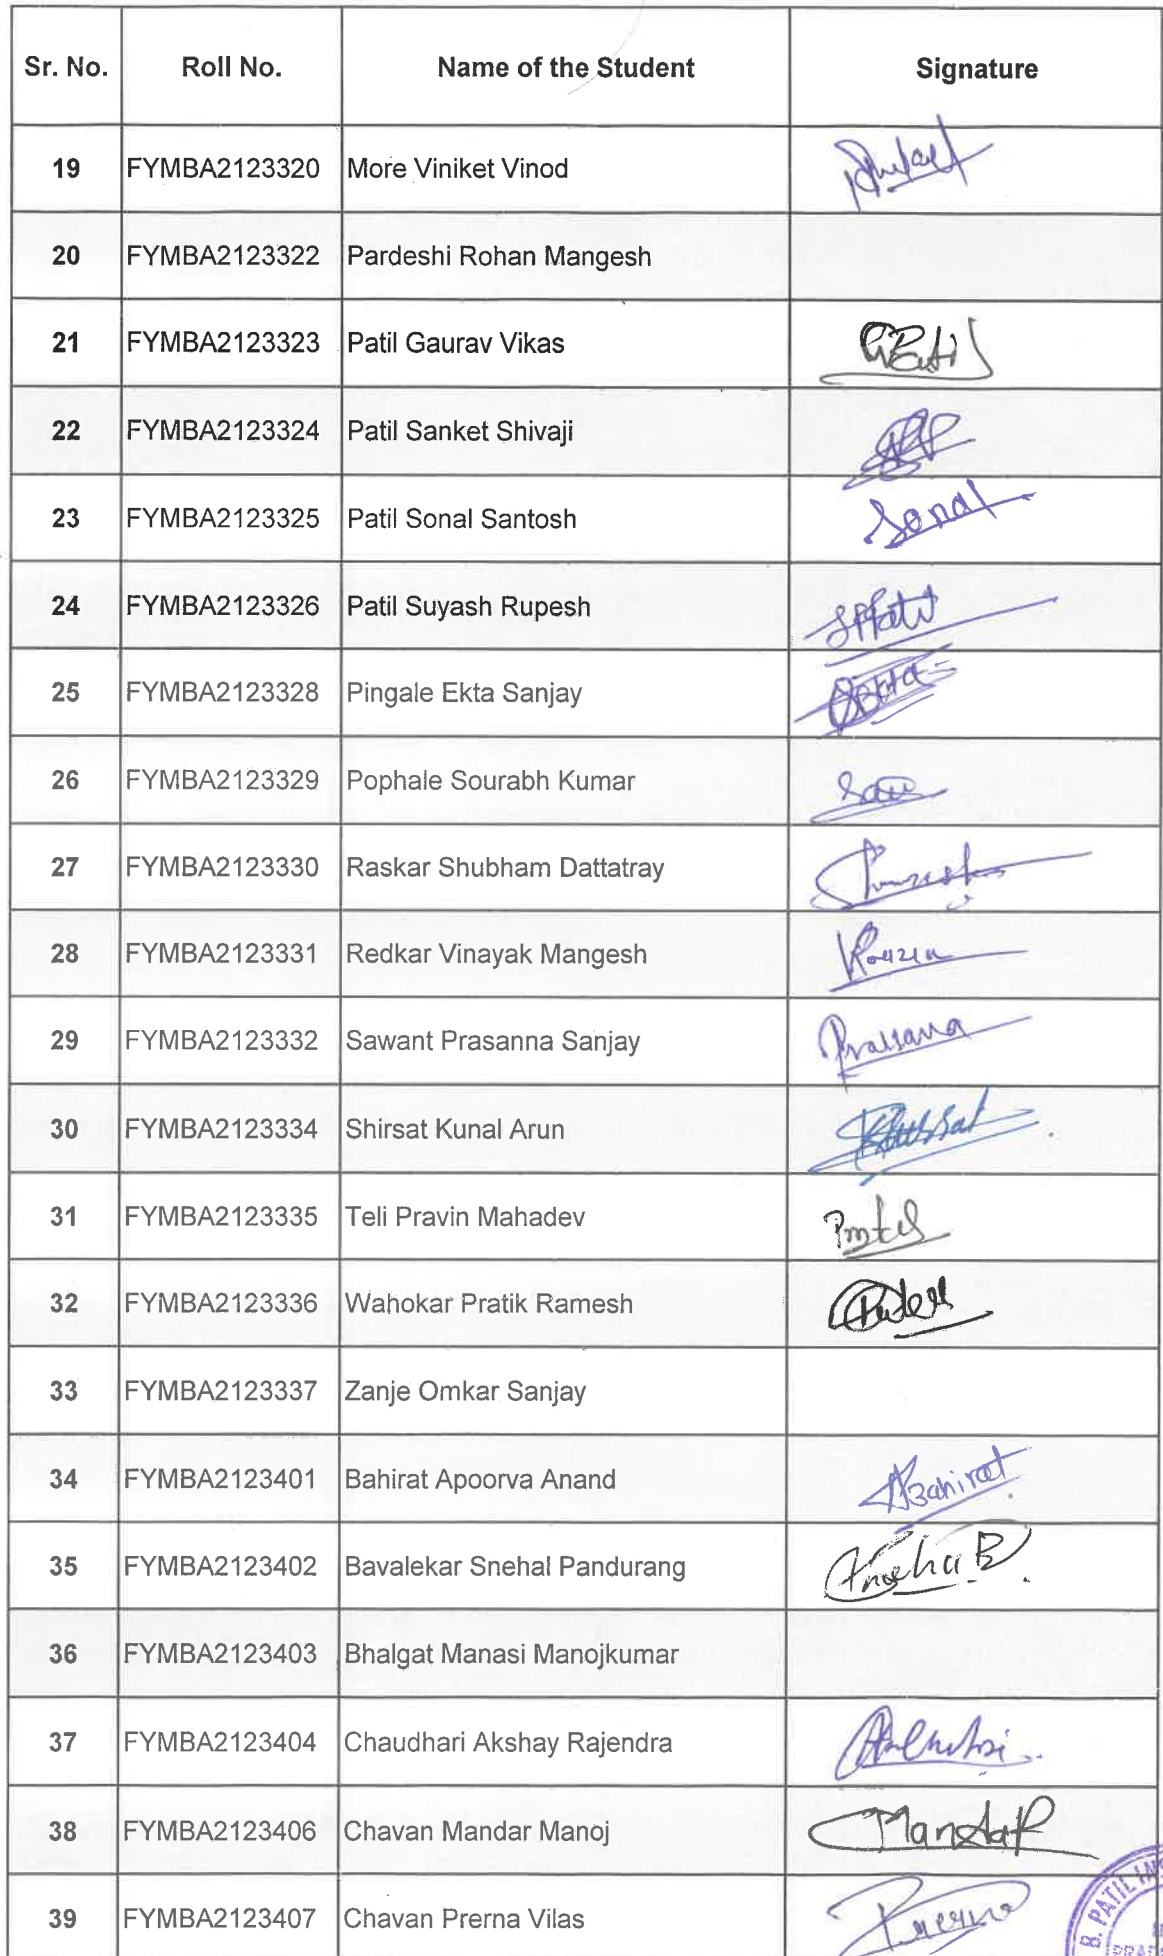 Sr. No. Roll No. Name of the Student Signature
19 FYMBA2123320 More Viniket Vinod
20 FYMBA2123322 Pardeshi Rohan Mangesh
21 FYMBA2123323 Patil Gaurav Vikas GPatil
22 FYMBA2123324 Patil Sanket Shivaji
23 FYMBA2123325 Patil Sonal Santosh Sonal
24 FYMBA2123326 Patil Suyash Rupesh
25 FYMBA2123328 Pingale Ekta Sanjay Ekta
26 FYMBA2123329 Pophale Sourabh Kumar
27 FYMBA2123330 Raskar Shubham Dattatray
28 FYMBA2123331 Redkar Vinayak Mangesh
29 FYMBA2123332 Sawant Prasanna Sanjay Prasanna
30 FYMBA2123334 Shirsat Kunal Arun
31 FYMBA2123335 Teli Pravin Mahadev
32 FYMBA2123336 Wahokar Pratik Ramesh
33 FYMBA2123337 Zanje Omkar Sanjay
34 FYMBA2123401 Bahirat Apoorva Anand ABahirat
35 FYMBA2123402 Bavalekar Snehal Pandurang
36 FYMBA2123403 Bhalgat Manasi Manojkumar
37 FYMBA2123404 Chaudhari Akshay Rajendra
38 FYMBA2123406 Chavan Mandar Manoj Mandar
39 FYMBA2123407 Chavan Prerna Vilas Prerna
B. PATIL INS